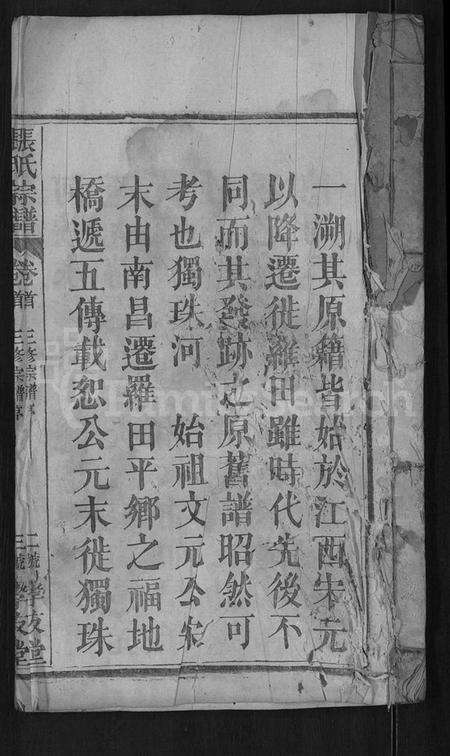 一溯其原籍皆始於江西宋元
以降遷徙羅田雖時代先後不
同而其發跡之原舊譜昭然可
考也獨珠河 始祖文元公宋
末由南昌遷羅田平鄉之福地
橋遞五傳載恕公元末徙獨珠
張氏宗譜
卷首
三修宗譜
FamilySearch